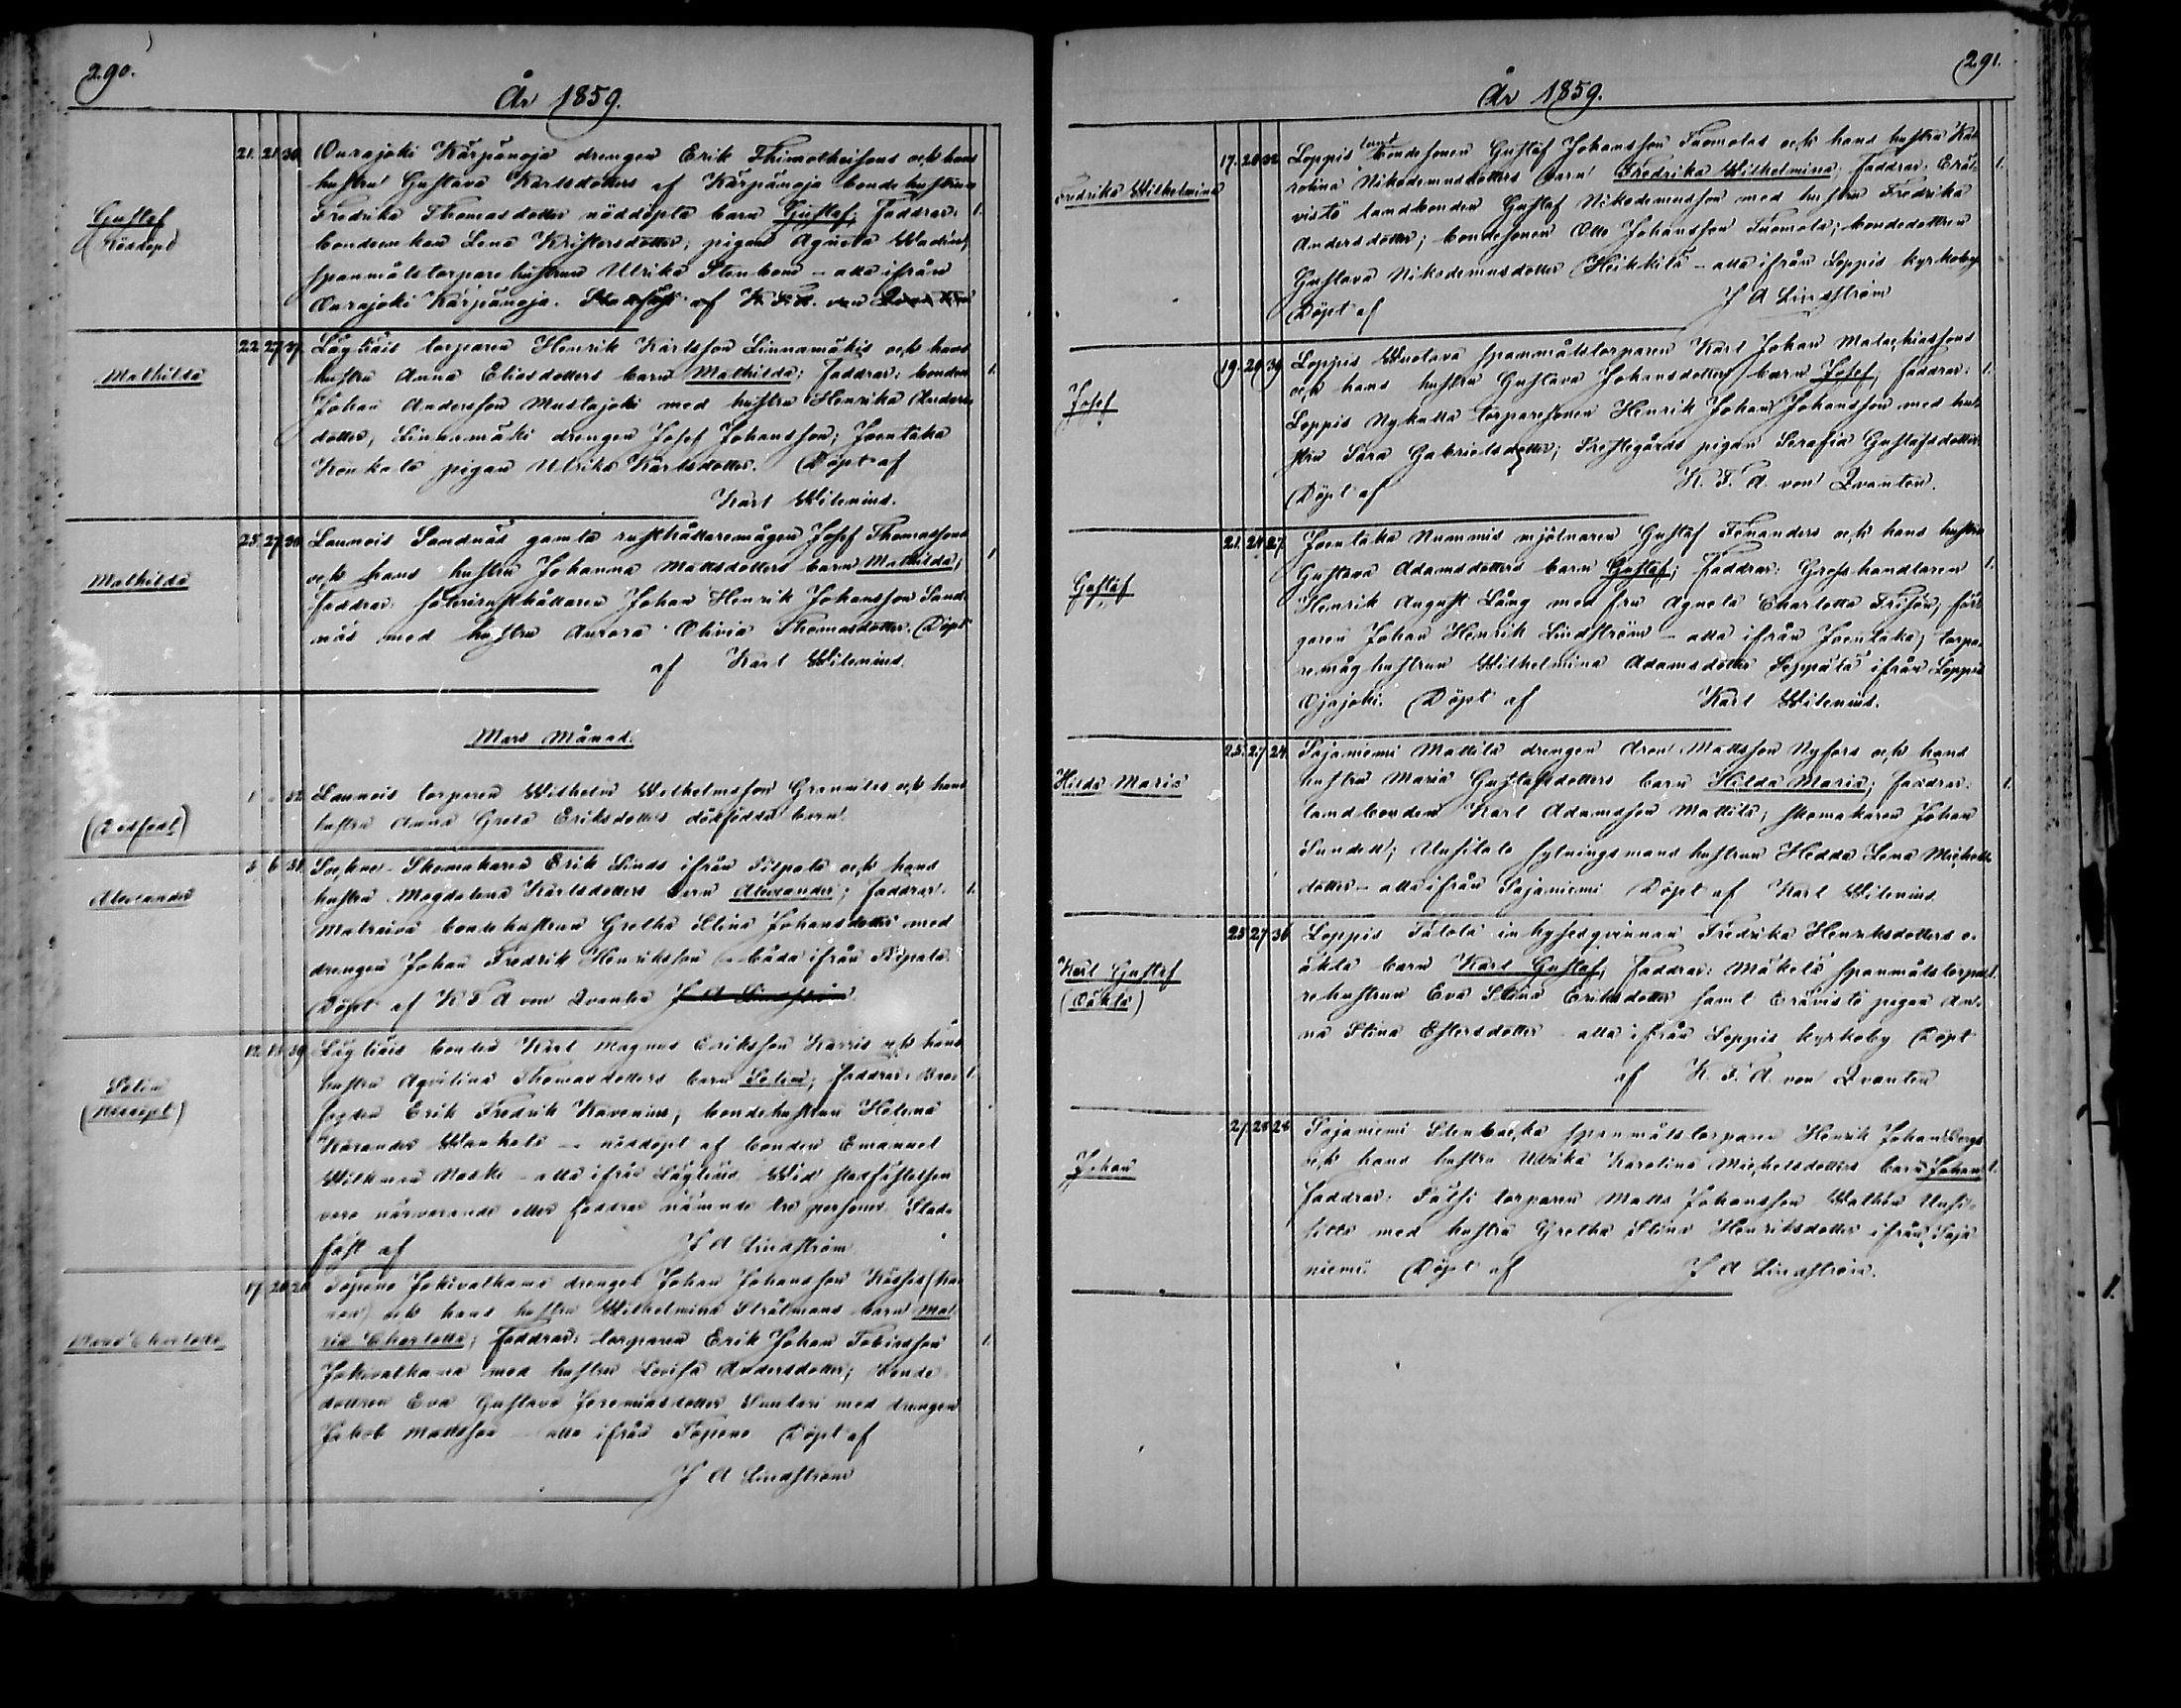 290.
År 1859.
Gustaf
Nöddöpt
21. 21. 30. Ourajoki Kärpänoja drengen Erik Thimotheisons och hans
hustru Gustava Karlsdotters af Kärpänoja bondehustrun
Fredrika Thomasdotter nöddöpta barn Gustaf; Faddrar: 1.
bondeenkan Lena Kristersdotter; pigan Agneta
spanmålstorpare hustrun Ulrika Stenbom – alla ifrån
Ourajoki Kärpänoja. af K. F. A. von
Mathilda
22. 27. 37. Läyliäis torparen Henrik Karlsson Linnamäkis och hans
hustru Anna Eliasdotters barn Mathilda; Faddrar: bonden 1.
Johan Andersson Mustajoki med hustru Henrika Anders
dotter; Linnamäki drengen Josef Johansson; Joentaka
Konkala pigan Ulrika Karlsdotter. Döpt af
Karl Wilenius.
Mathilda
25. 27. 30. Launois Sandnäs gamla rusthållaremågen Josef Thomassons
och hans hustru Johanna Mattsdotters barn Mathilda; 1
Faddrar: säterirusthållaren Johan Henrik Johansson Sand-
näs med hustru Aurora Olivia Thomasdotter. Döpt
af Karl Wilenius.
Mars Månad.
(Dödfödt)
1. – 32. Launois torparen Wilhelm Wilhelmsson Grannilas och hans
hustru Anna Greta Eriksdotters dödfödda barn.
Alexander
5. 6. 31. Sockne-Skomakaren Erik Linds ifrån Pilpala och hans
hustru Magdalena Karlsdotters barn Alexander; Faddrar: 1.
bondehustrun Gretha Stina Johansdotter med
drengen Johan Fredrik Henriksson – båda ifrån Pilpala.
Döpt af K F A von Qvanten J A Lindström.
Selim
(Nöddöpt)
12. 13. 39. Läyliäis bonden Karl Magnus Eriksson Karris och hans
hustru Aqvilina Thomasdotters barn Selim; Faddrar: 1.
Erik Fredrik; bondehustrun Helena
– nöddöpt af bonden Emanuel
– alla ifrån Läyliäis. Wid stadfästelsen
voro närvarande alla Faddrar nämnde tre personer. Stad-
fäst af J A Lindström
17. 20. 20. Topeno Jokivalkama drengen Johan Johansson
och hans hustru Wilhelmina Strålmans barn Ma-
ria Charlotta; Faddrar: torparen Erik Johan Tobiasson 1.
Jokivalkama med hustru Lovisa Andersdotter; bonde-
dottren Eva Gustava Jeremiasdotter Suntari med drengen
Jakob Mattsson – alla ifrån Topeno Döpt af
J A Lindström
291.
År 1859.
Fredrika Wilhelmina
17. 20. 22. Loppis land bondesonen Gustaf Johansson Tuomolas och hans hustru Ka-
rolina Nikodemusdotters barn Fredrika Wilhelmina; Faddrar: Erä- 1.
vistö landbonden Gustaf Nikodemusson med hustru Fredrika
Andersdotter; bondesonen Otto Johansson Tuomola; bondedottren
Gustava Nikodemusdotter Heikkilä – alla ifrån Loppis kyrkoby
Döpt af J A Lindström
Josef
19. 20. 39. Loppis spanmålstorparen Karl Johan Malachiassons
och hans hustru Gustava Johansdotters barn Josef; Faddrar: 1.
Loppis torparesonen Henrik Johan Johansson med hu-
stru Sara Gabrielsdotter; Prestegårds pigan Serafia Gustafsdotter
Döpt af K. F. A. von Qvanten.
Gustaf
21. 24. 27. Joentaka Nummis mjölnaren Gustaf Fenanders och hans hustru
Gustava Adamsdotters barn Gustaf; Faddrar: Groshandlaren 1.
Henrik August Lång med fru Agneta Charlotta; fär-
garen Johan Henrik Lindström – alla ifrån Joentaka; torpa-
remåg hustrun Wilhelmina Adamsdotter Seppälä ifrån Loppis
Ojajoki. Döpt af Karl Wilenius.
Hilda Maria
25. 27. 24. Sajaniemi Mattila drengen Aron Mattsson Nyfors och hans
hustru Maria Gustafsdotters barn Hilda Maria; Faddrar: 1.
landbonden Karl Adamsson Mattila; skomakaren Johan
Sundell; Uusitalo hustrun Hedda Lena Michels-
dotter – alla ifrån Sajaniemi Döpt af Karl Wilenius.
Karl Gustaf
(Oäkta)
23. 27. 36. Loppis Talola inhysesqvinnan Fredrika Henriksdotters o-
äkta barn Karl Gustaf; Faddrar: Mäkelä spanmålstorpa- 1.
rehustrun Eva Stina Eriksdotter samt Erävistö pigan An-
na Stina Estersdotter – alla ifrån Loppis kyrkoby Döpt
af K. F. A. von Qvanten
Johan
27. 28. 28. Sajaniemi Stenbacka spanmålstorparen Henrik Johan Bergs
och hans hustru Ulrika Karolina Michelsdotters barn Johan 1.
Faddrar: torparen Matts Johansson
med hustru Gretha Stina Henriksdotter ifrån Saja
niemi. Döpt af J A Lindström.
1.